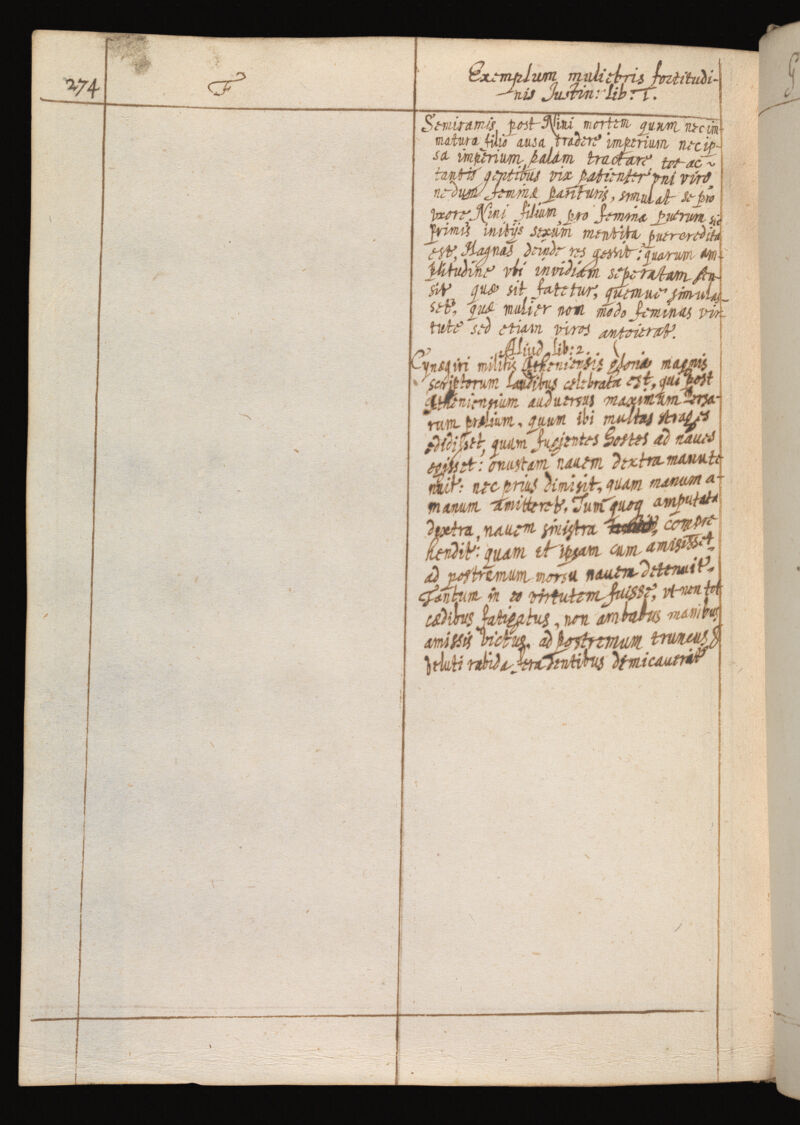 274
F
Exemplum muliebris fortitudi-
nis Justin: lib: 1.
Semiramis post Nini mortem quum nec im-
matura filio ausa tradere imperium nec ip-
sa imperium palam tractare tot ac
tantis gentibus vix patienter vni viro
nedum feminæ parituris, simulat se pro
vxore Nini filium, pro femina puerum sic
primis initijs sexum mentita puer credita
est. Magnas deinde res gessit: quarum am-
plitudine vbi invidiam seperatam sen-
sit quæ sit fatetur, quemue simulas-
set. quæ mulier non modo feminas vir
tute sed etiam viros anteierat.
Aliud lib: 2.
Cynægiri militis Atheniensis gloria magnis
scriptorum laudibus celebrata est, qui post
Atheniensium adversus maximum Persa-
rum prælium, quum ibi multas strages
edidisset, quam fugientes hostes ad naues
egisset: onustam nauem dextra manu te
nuit: nec prius dimisit, quam manum a-
manum amitteret. Tum quoq amputata
dextra, nauem sinistra compre
hendit: quam et ipsam cum amisisset,
ad postremum morsu nauem detenuit.
Tantum in eo virtutem fuisse, vt non tot
cædibus fatigatus, non ambabus manibus
amissis victus, ad postremum truncus &
veluti rabida fera dentibus demicauerat
G